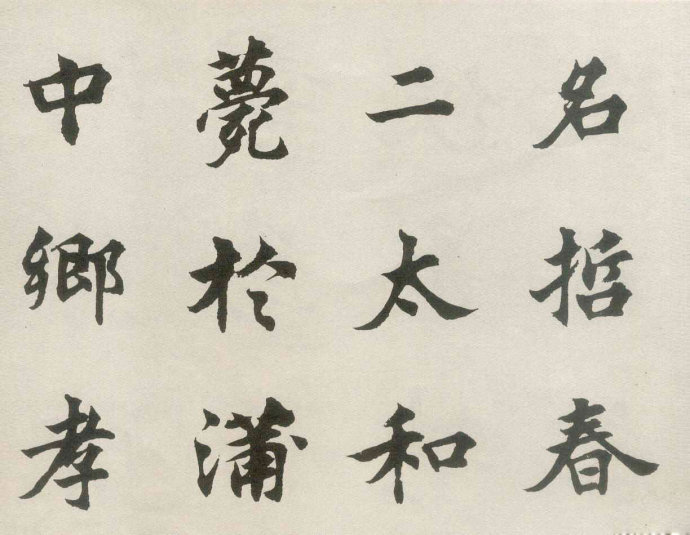 名哲春
二太和
薨於蒲
中鄉孝